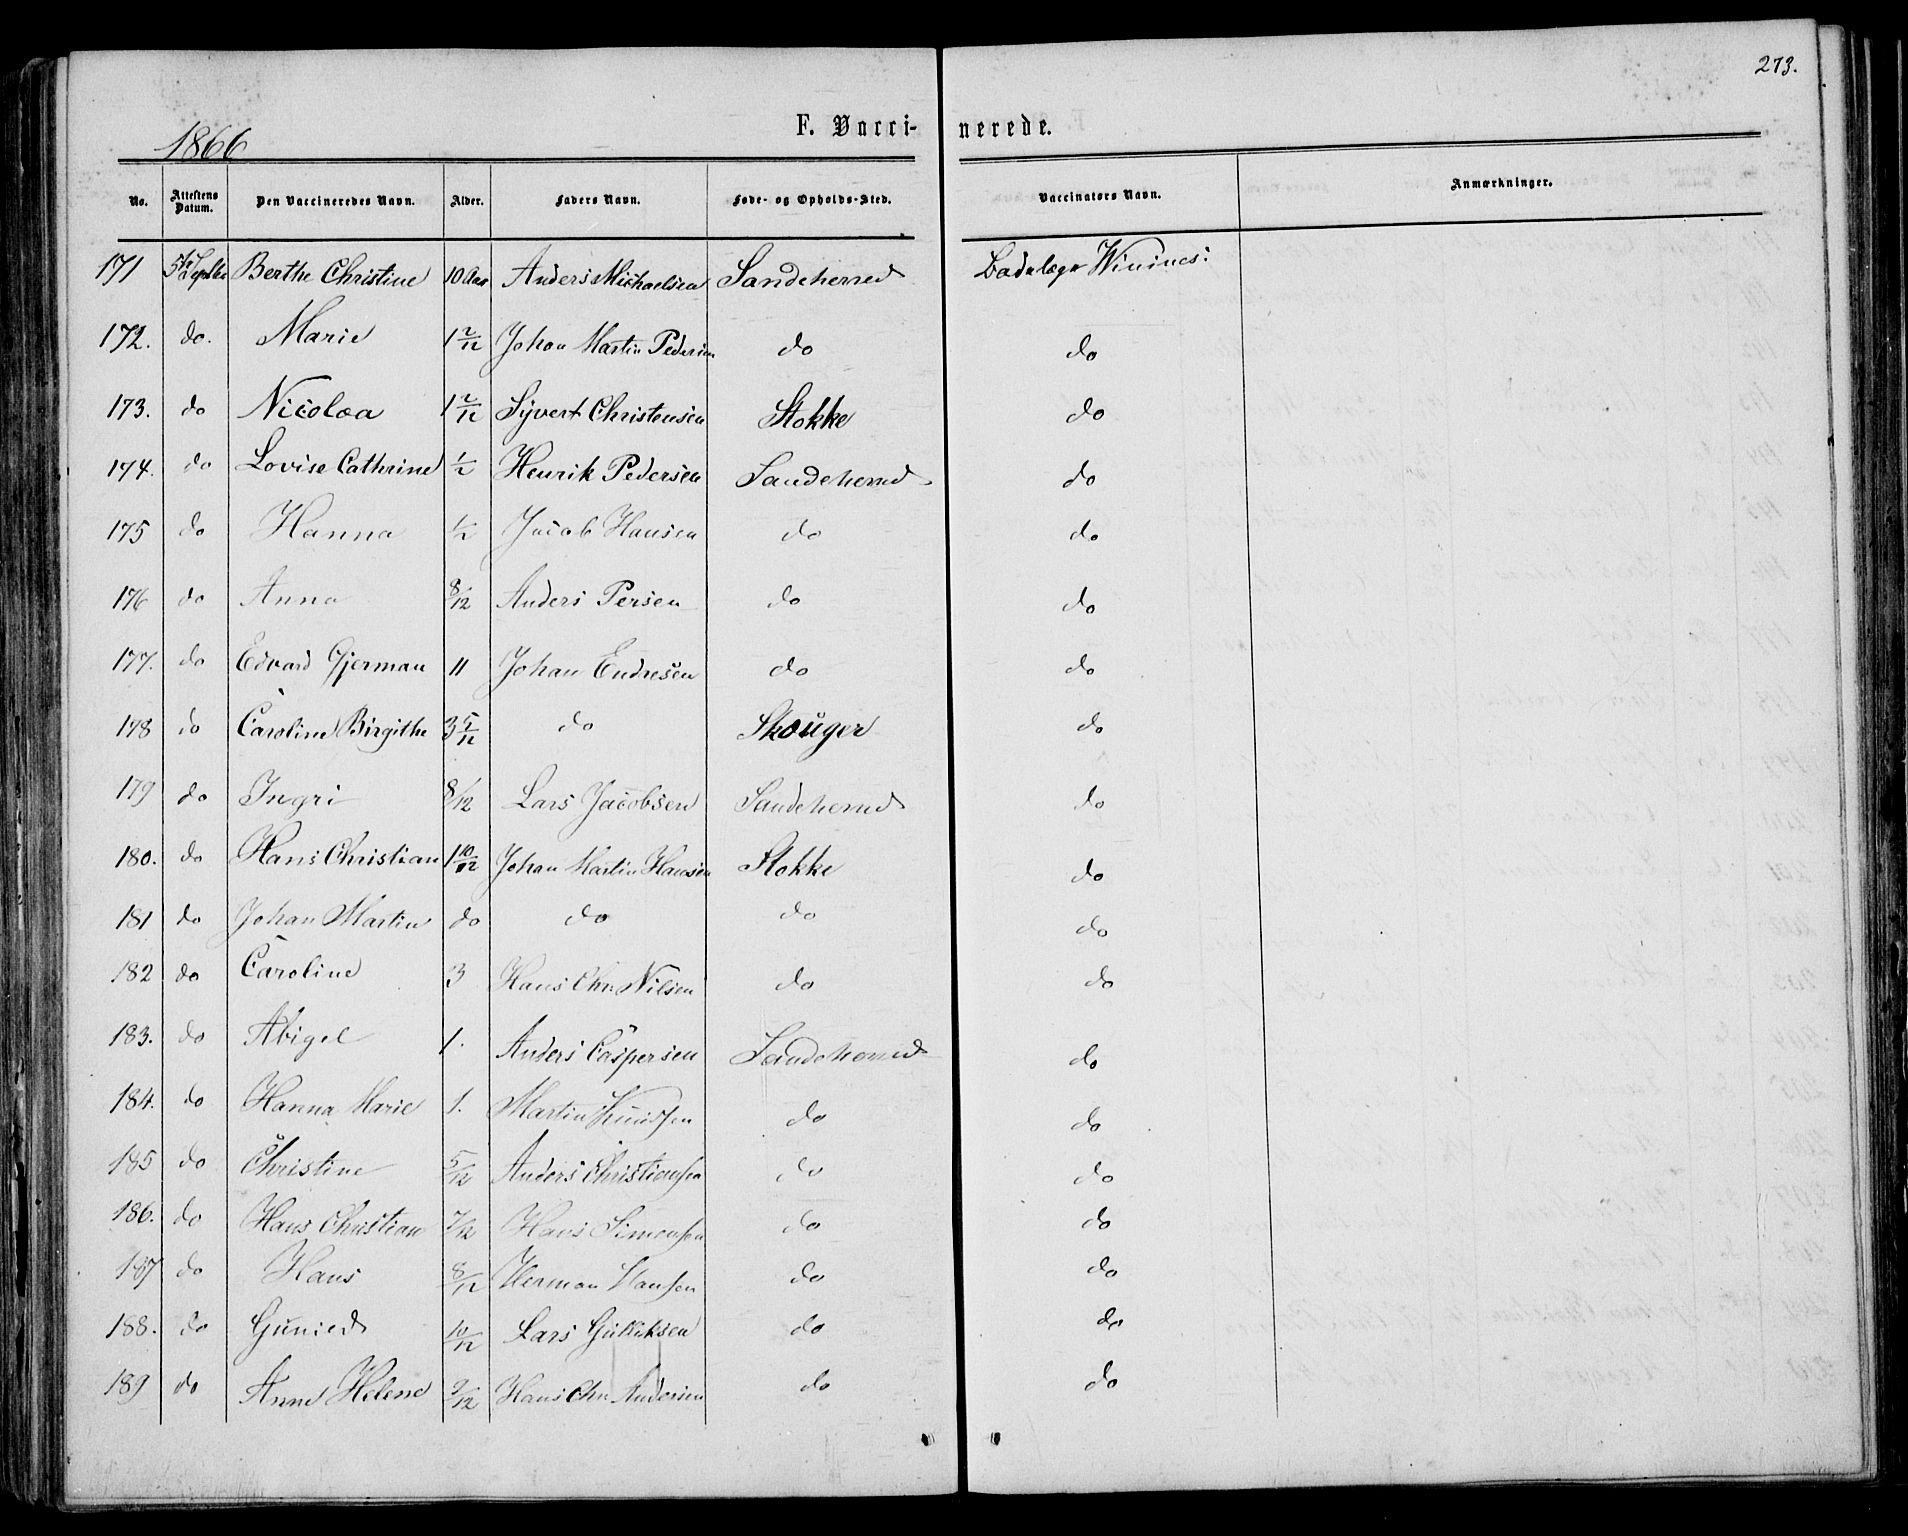 273.
1866
F. Vacci- nerede.
No. Attestens Datum. Den Vaccineredes Navn. Alder. Faders Navn. Føde- og Opholds-Sted. Vaccinators Navn. Anmærkninger.
171 Berthe Christine 10 Aar Anders Michaelsen Sandeherred Badelæge
172. do. Marie 1 2/12 Johan Martin Pedersen do do
173. do Nicolaa 1 2/12 Syvert Christensen Stokke do
174. do Lovise Cathrine 1/2 Henrik Pedersen Sandeherred do
175 do Hanna 1/2 Jacob Hansen do do
176 do Anna 8/12 Anders Persen do do
177. do Edvard Gjerman 11 Johan Endresen do do
178 do Caroline Birgithe 3 5/12 do Skouger do
179 do Ingri 8/12 Lars Jacobsen Sandeherred do
180. do Hans Christian 1 10/12 Johan Martin Hansen Stokke do
181 do Johan Martin do do do do
182 do Caroline 3 Hans Chr. Nilsen do do
183. do Abigel 1. Anders Caspersen Sandeherred do
184. do Hanna Marie 1. Martin Knudsen do do
185 do Christine 5/12 Anders Christiansen do do
186. do Hans Christian 7/12 Hans Simonsen do do
187 do Hans 8/12 Herman Hansen do do
188. do 10/12 Lars Gulliksen do do
189 do Anne Helene 9/12 Hans Chr Andersen do do